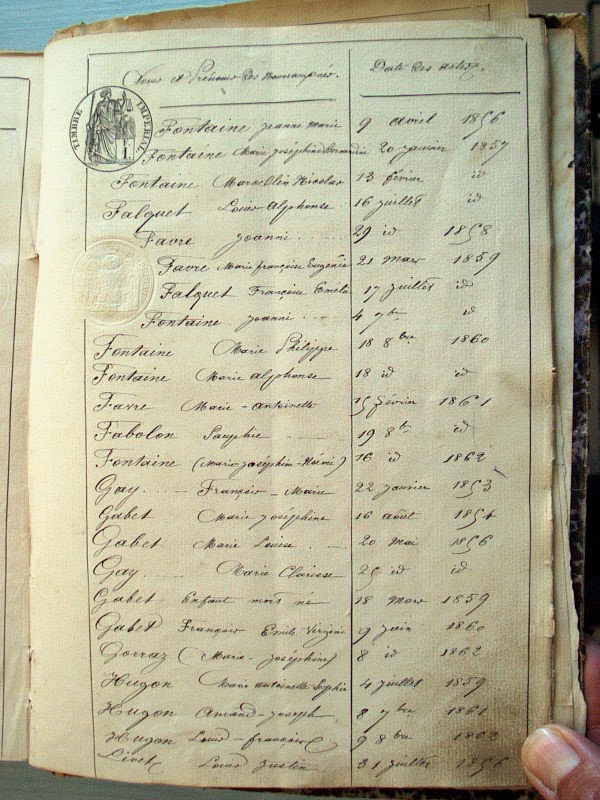 Noms et Prénoms des Nouveaux nés. Date des actes.
TIMBRE IMPERIAL
Fontaine Jeanne Marie 9 avril 1856
Fontaine Marie Joséphine Bernardin 20 janvier 1857
Fontaine Marcellin Nicolas 13 février id
Falquet Louis Alphonse 16 juillet id
Favre Joanni 29 id 1858
Favre Marie françoise Eugénie 21 mars 1859
Falquet François Emile 17 juillet id
Fontaine Joanni 4 7bre id
Fontaine Marie Philippe 18 8bre 1860
Fontaine Marie alphonse 18 id id
Favre Marie-antoinette 15 février 1861
Fabolon Sauphie 19 8bre id
Fontaine (Marie-joséphine-Noémi) 16 id 1862
Gay François-Marie 22 janvier 1853
Gabet Marie Joséphine 16 août 1854
Gabet Marie Louise 20 mai 1856
Gay Marie Clarisse 25 id id
Gabet Enfant mort né 18 mars 1859
Gabet François Emile Virginie 9 juin 1860
Gorraz (Marie-Joséphine) 8 id 1862
Hugon Marie antoinette Sophie 4 juillet 1859
Hugon Amand-Joseph 8 7bre 1861
Hugon Louis-françois 9 8bre 1862
Livet Louis Justin 31 juillet 1856